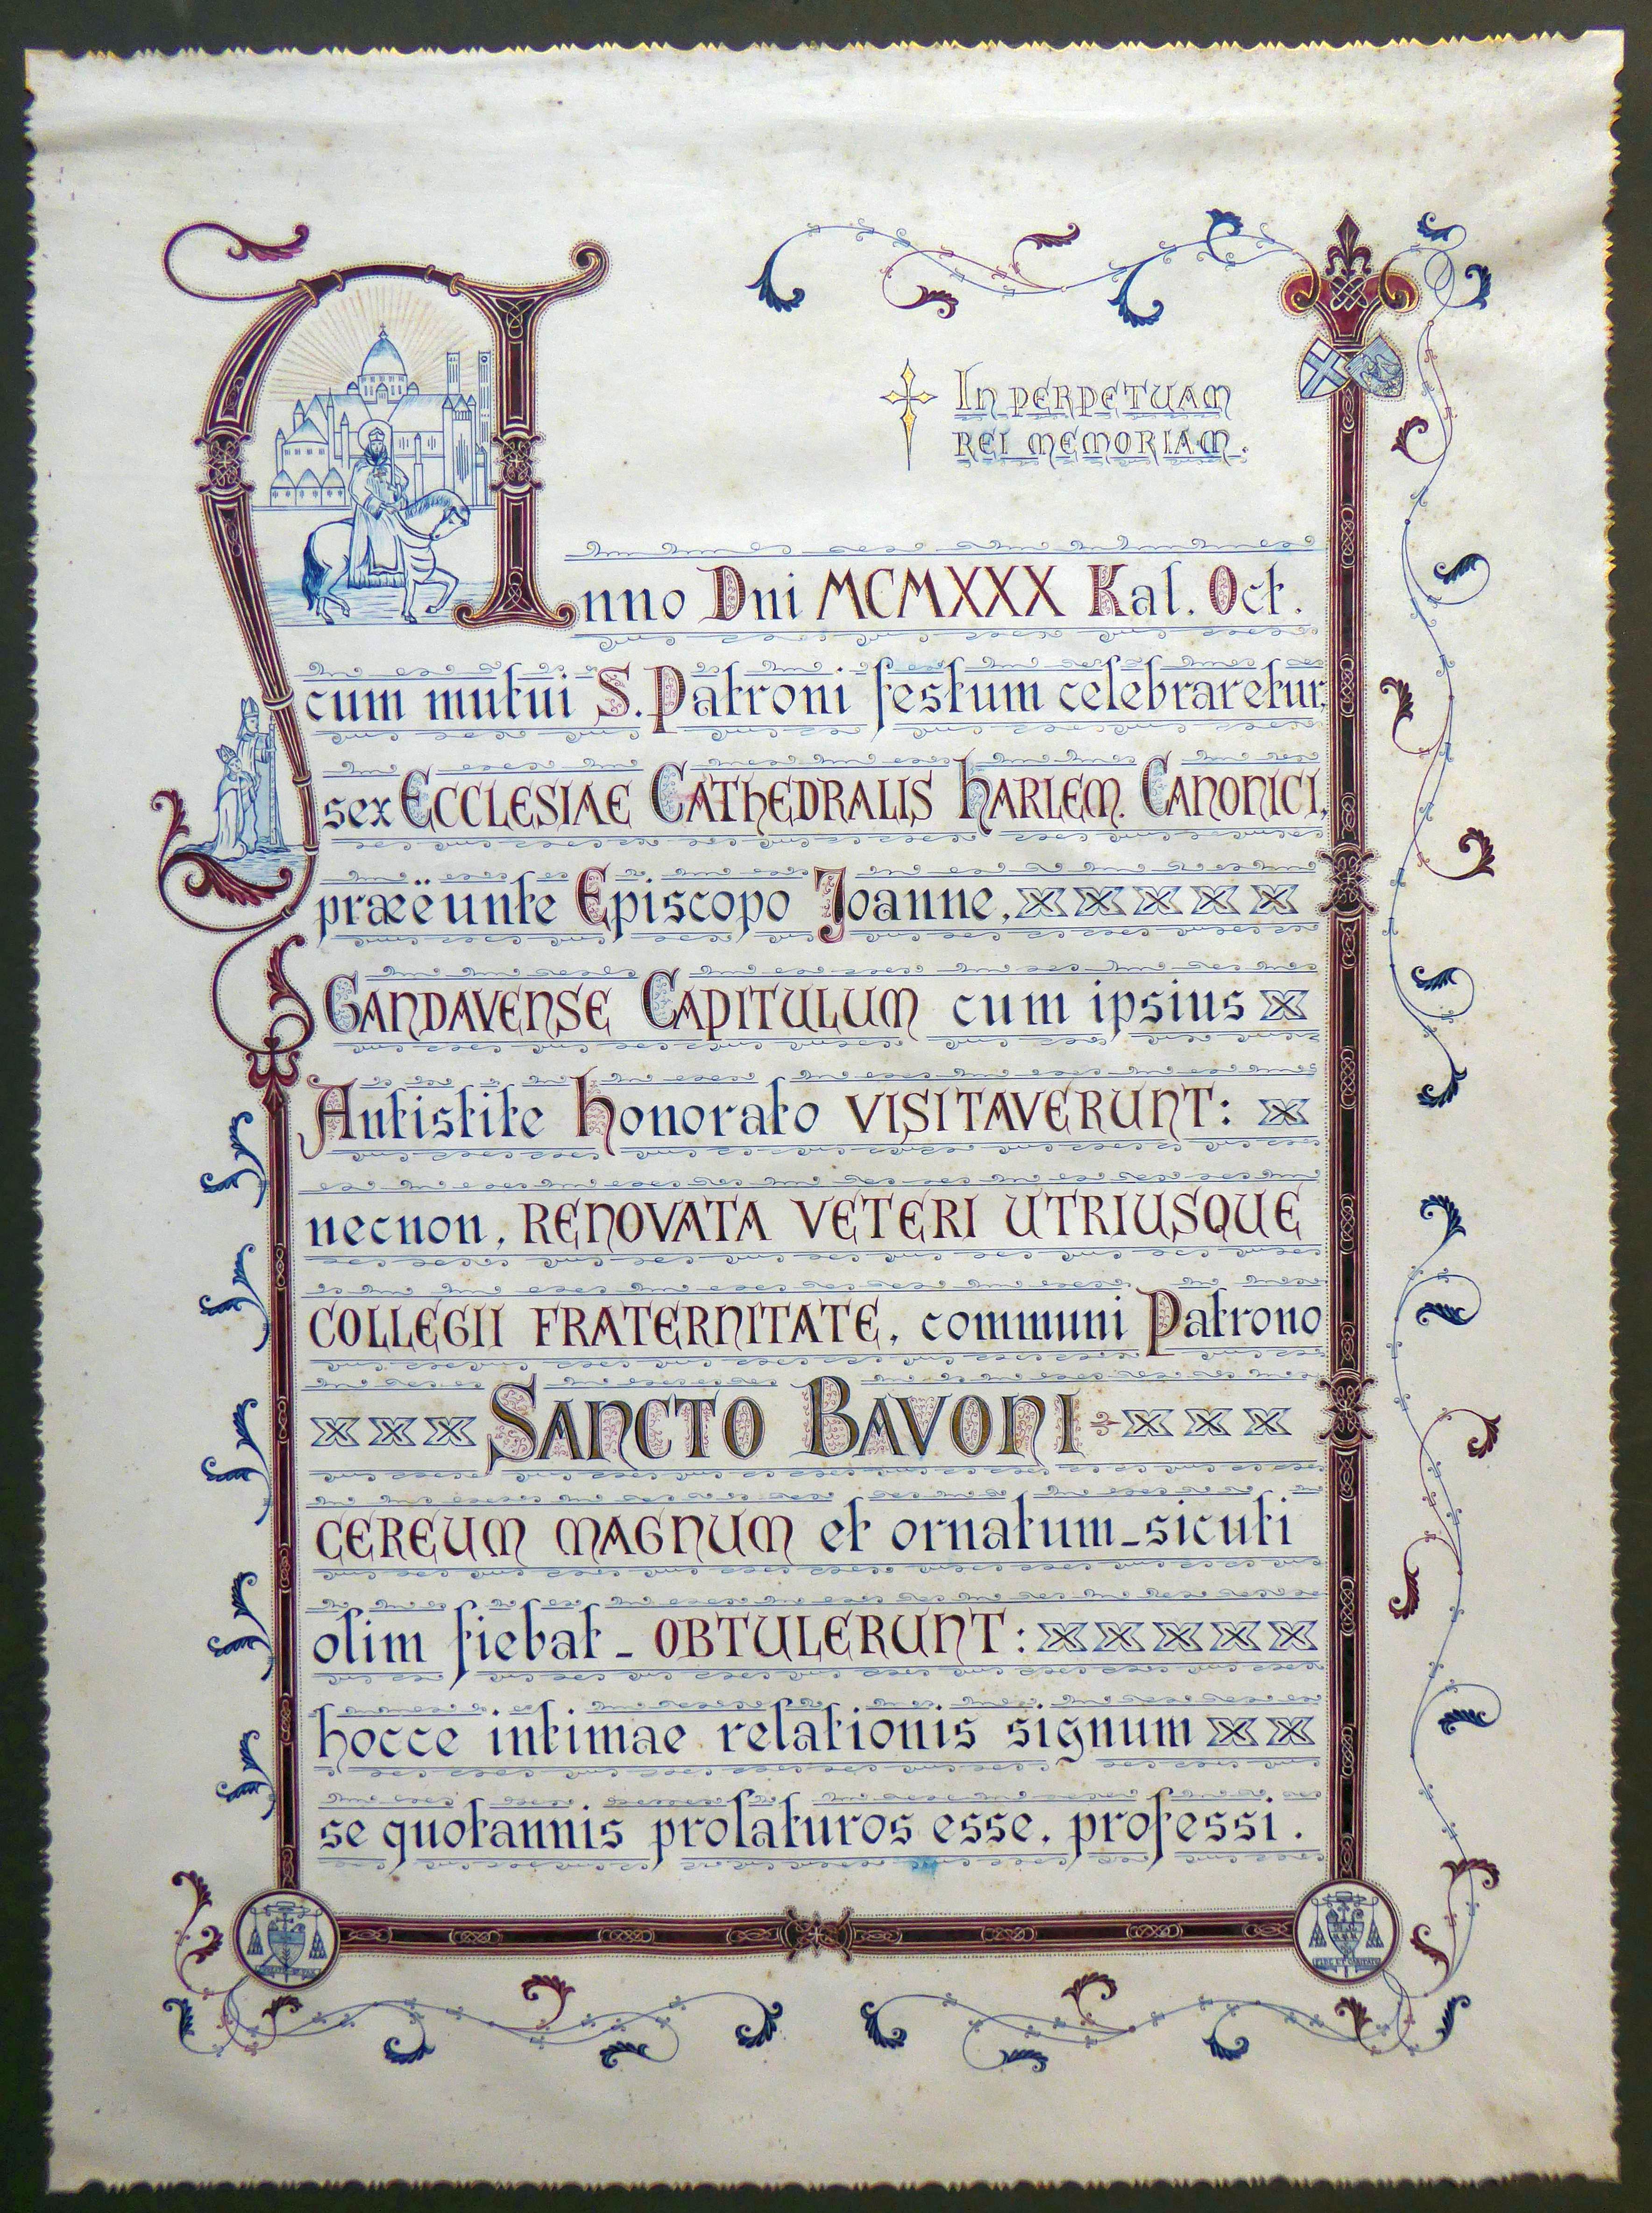 In perpetuam
rei memoriam.
Anno Dni MCMXXX Kal. Oct.
cum mutui S. Patroni festum celebraretur,
sex Ecclesiae Cathedralis Harlem. Canonici,
præëunte Episcopo Joanne,
Gandavense Capitulum cum ipsius
Antistite Honorato VISITAVERUNT:
necnon, RENOVATA VETERI UTRIUSQUE
COLLEGII FRATERNITATE, communi Patrono
Sancto Bavoni
CEREUM MAGNUM et ornatum_sicuti
olim fiebat_ OBTULERUNT:
hocce intimae relationis signum
se quotannis prolaturos esse, professi.